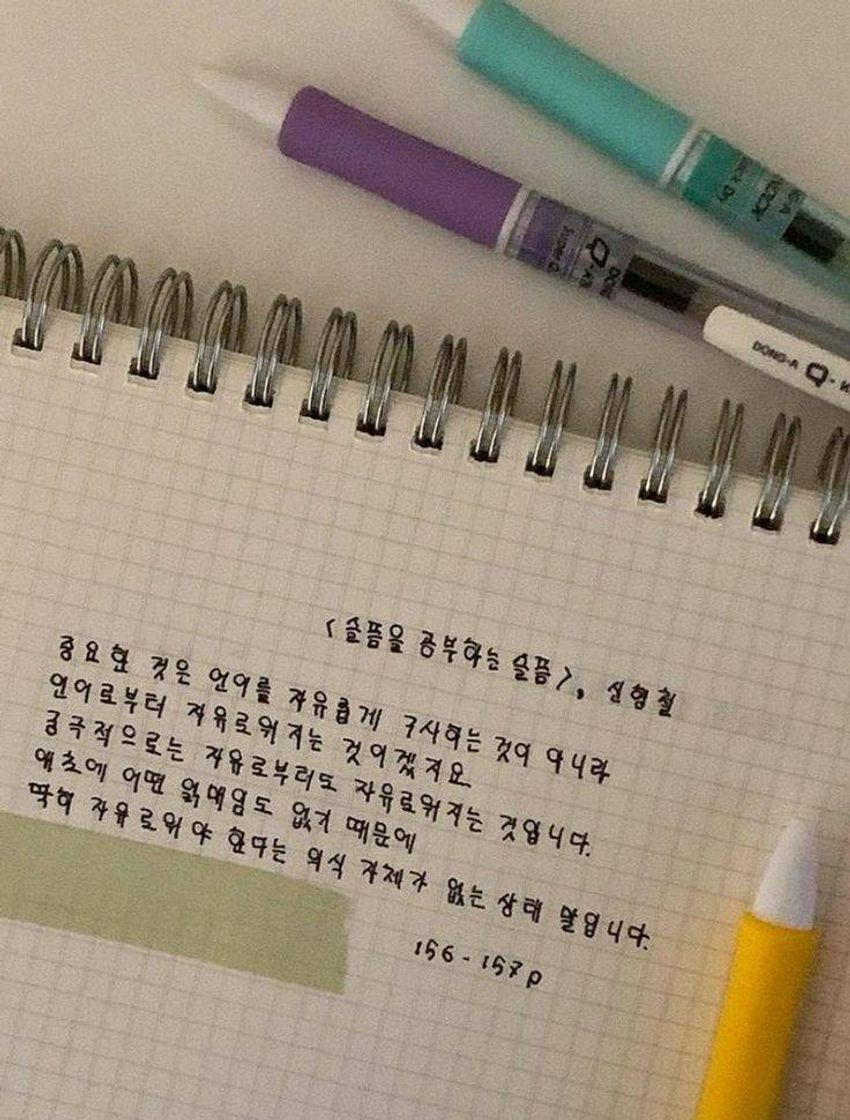 DONG-A Q-K
<슬픔을 공부하는 슬픔>, 신형철
중요한 것은 언어를 자유롭게 구사하는 것이 아니라
언어로부터 자유로워지는 것이겠지요
궁극적으로는 자유로부터도 자유로워지는 것입니다.
애초에 어떤 얽매임도 없기 때문에
딱히 자유로워야 한다는 의식 자체가 없는 상태 말입니다.
156 - 157 p